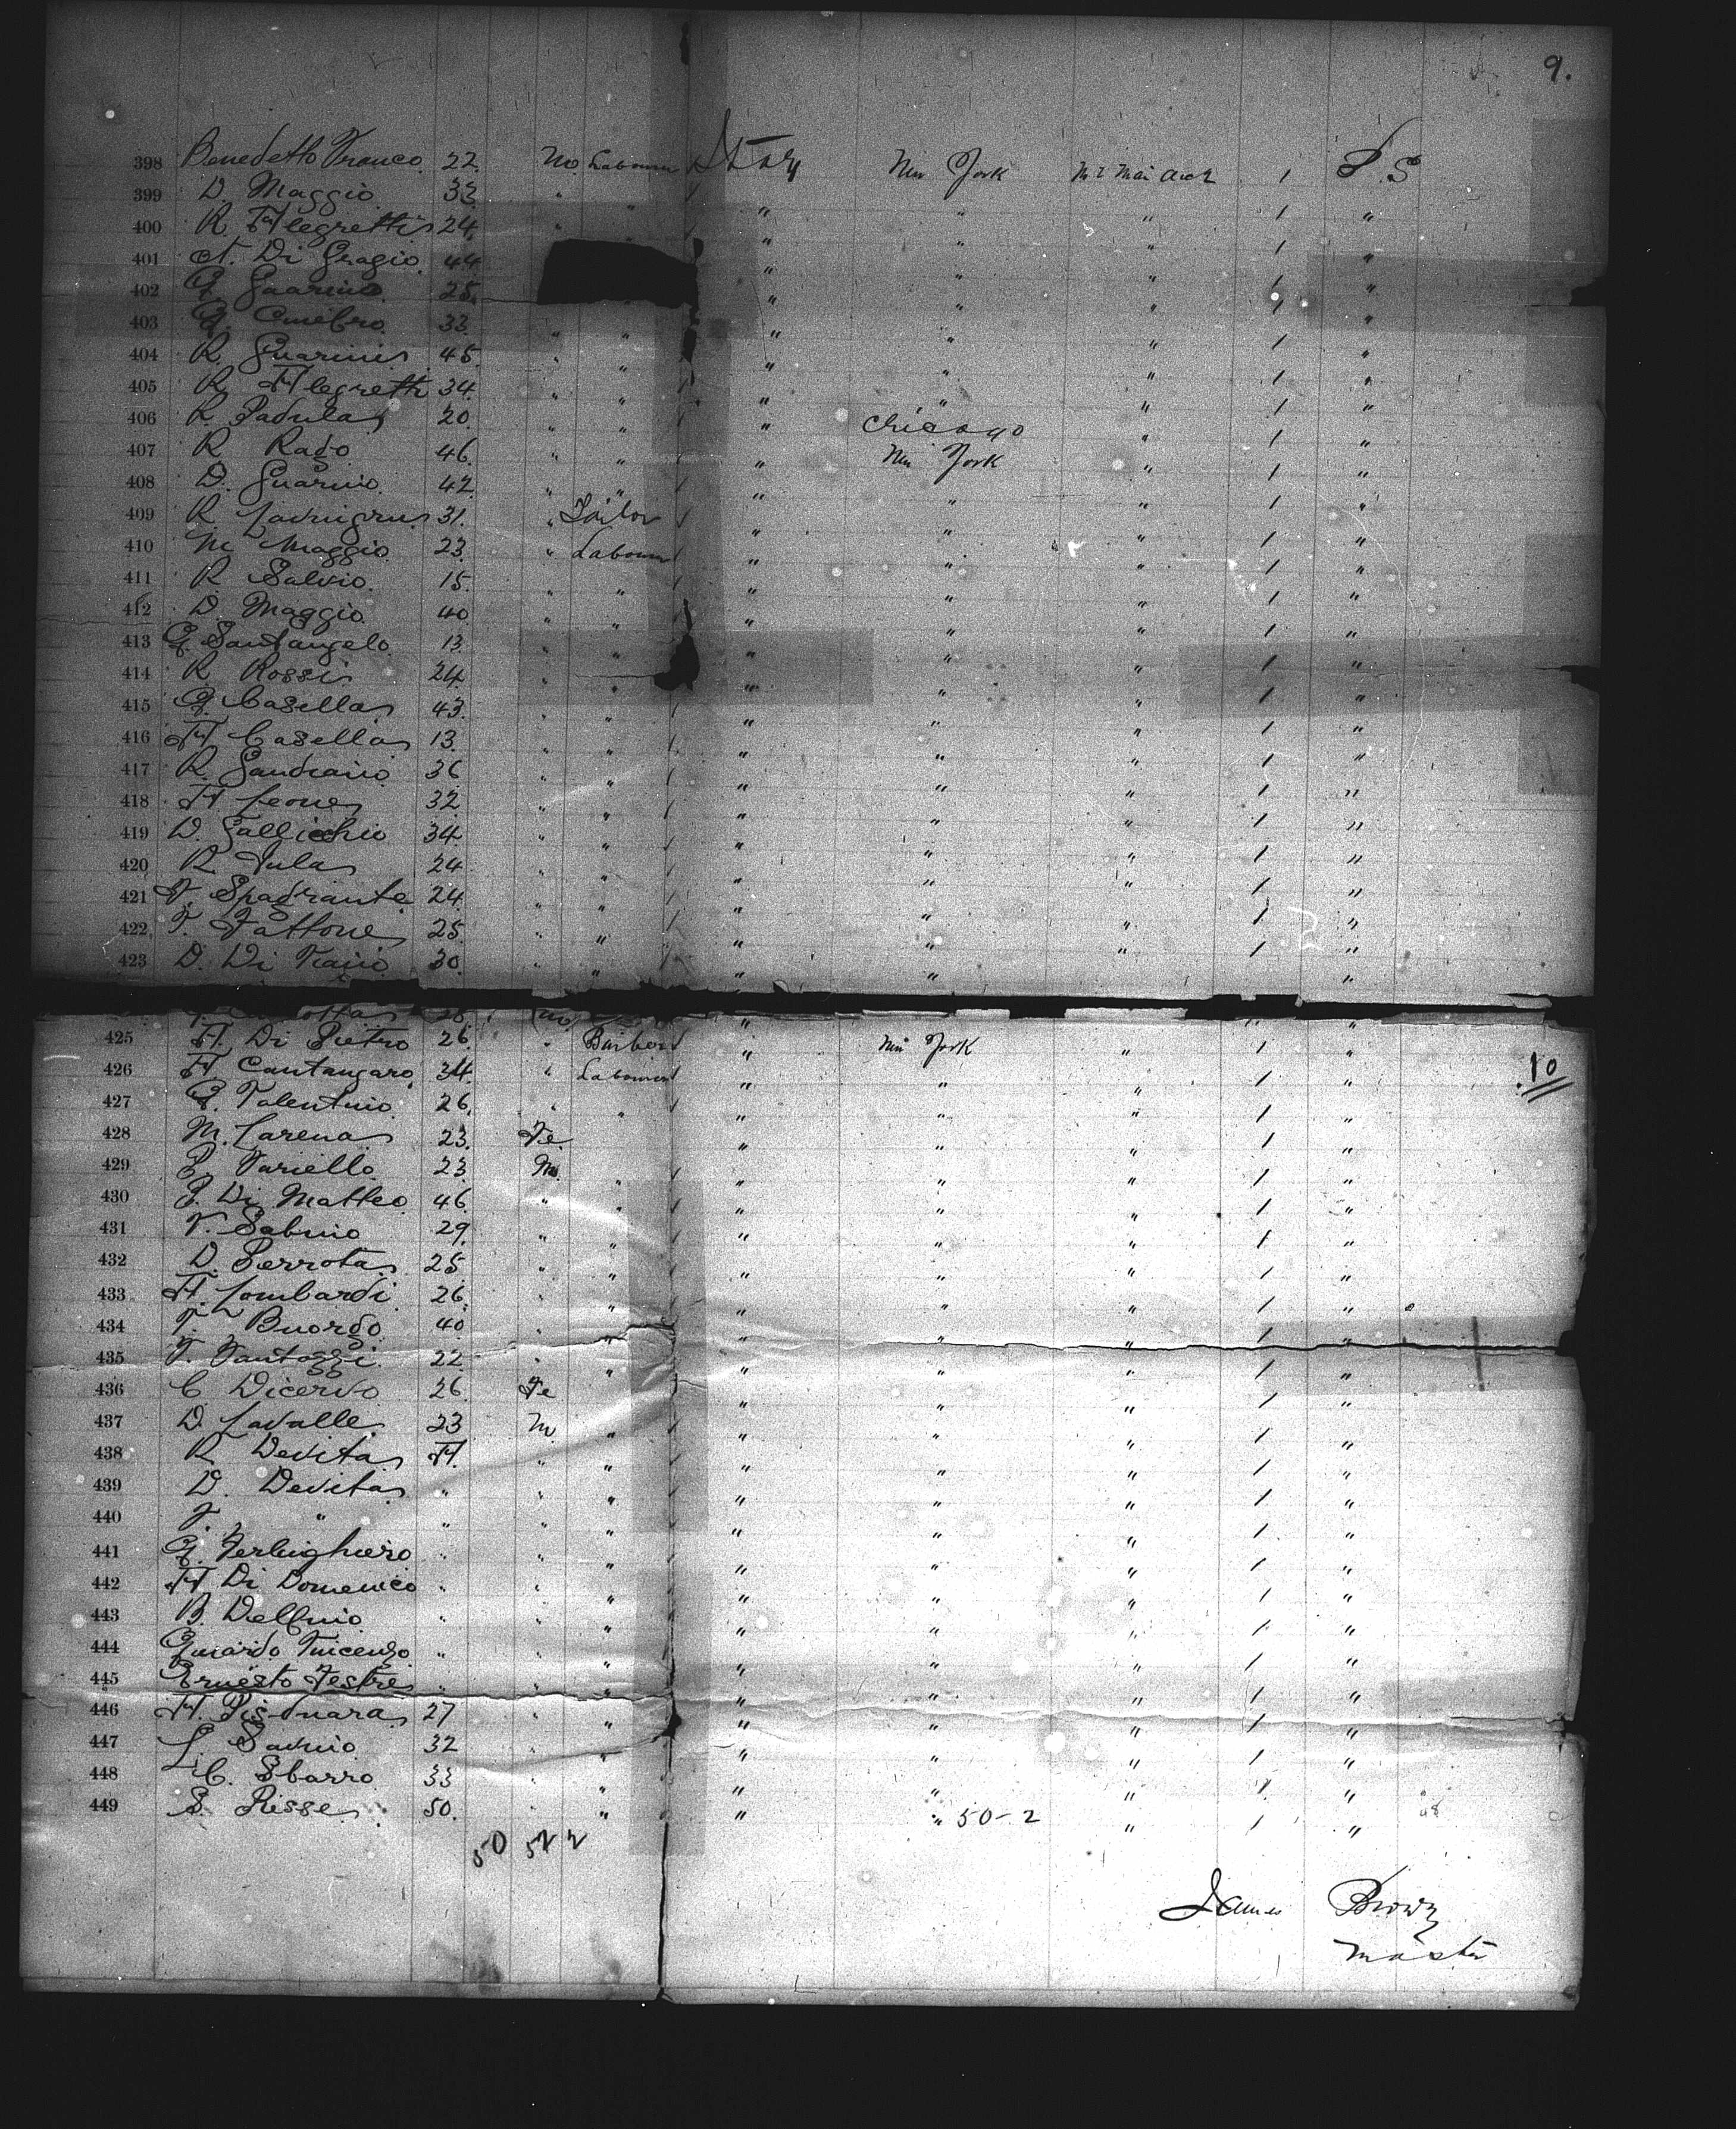 9.
398 Benedetto Franco 22 M Labourer Italy New York M 2 Main deck 1 S.S
399 D. Maggio 33 " " " " " 1 "
400 R. Allegretti 24 " " " " " 1 "
401 A. Di Gragio 44 " " " 1 "
402 G. Guarino 25 " " " 1 "
403 G. 33 " " " " " 1 "
404 R. Guarini 45 " " " " " 1 "
405 R. Allegretti 34 " " " " " 1 "
406 R. Padula 20 " " " Chicago " 1 "
407 R. Rago 46 " " " New York " 1 "
408 D. Guarino 42 " " " " " 1 "
409 R. 31 " Tailor " " " 1 "
410 M Maggio 23 " Labourer " " " 1 "
411 R Salvio 15 " " " " " 1 "
412 D. Maggio 40 " " " " " 1 "
413 G. Santangelo 13 " " " " " 1 "
414 R Rossi 24 " " " " " 1 "
415 G. Casella 43 " " " " " 1 "
416 A Casella 13 " " " " " 1 "
417 R. 36 " " " " " 1 "
418 A Leone 32 " " " " " 1 "
419 D. Gallicchio 34 " " " " " 1 "
420 R. Tula 24 " " " " " 1 "
421 V. Spadrante 24 " " " " " 1 "
422 F. Fattone 25 " " " " " 1 "
423 D. Di 30 " " " " "
425 A. Di Pietro 26 " Barber " New York " 1 "
10
426 A Cantangaro 34 " Labourer " " " 1 "
427 G. Tolentino 26 " " " " " 1 "
428 M. Larena 23 Fe " " " 1 "
429 Variello 23 M " " " " 1 "
430 G. Di Matteo 46 " " " " " 1 "
431 V. Sabino 29 " " " " " 1 "
432 D. Perrota 25 " " " " " 1 "
433 A. Lombardi 26 " " " " " 1 "
434 F. Buongo 40 " " " " " "
435 F. Fantozzi 22 " " " " " 1 "
436 C Dicervo 26 Fe " " " 1 "
437 D. Lavalle 23 M " " " " 1 "
438 R Devita A. " " " " " 1 "
439 D. Devita " " " " " " 1 "
440 F. " " " " " " " 1 "
441 G. Ferlinghiero " " " " " " 1 "
442 A Di Domenico " " " " " " 1 "
443 B. Delfino " " " " " " 1 "
444 Guardo Vincenzo " " " " " " 1 "
445 Ernesto Festre " " " " " " 1 "
446 A. Pisduara 27 " " " " " 1 "
447 L Savino 32 " " " " " 1 "
448 C. Sbarro 33 " " " " " 1 "
449 S. Risse 50 " " " " 50-2 " 1 "
50 52 2
James Brown
Master